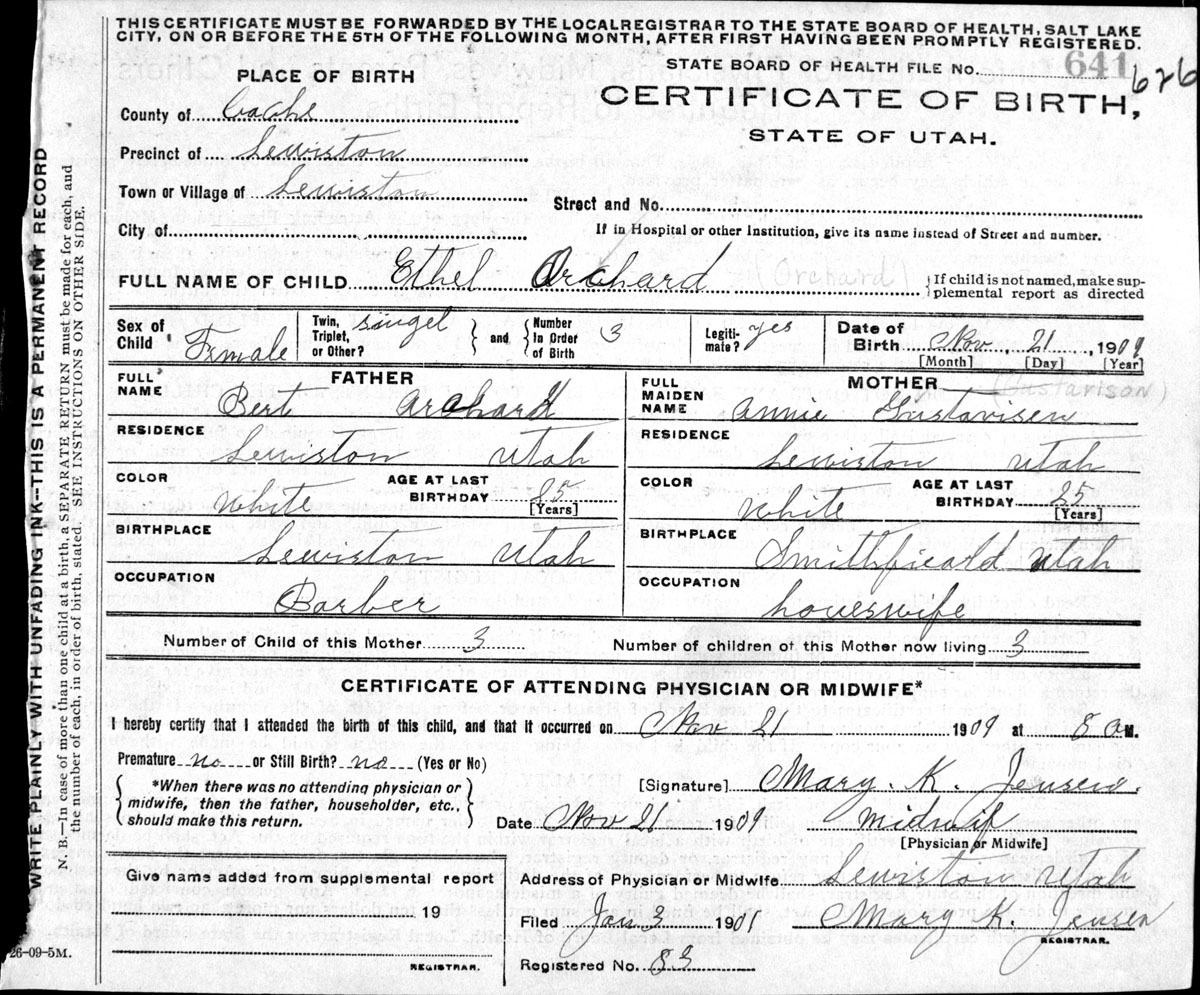 THIS CERTIFICATE MUST BE FORWARDED BY THE LOCAL REGISTRAR TO THE STATE BOARD OF HEALTH, SALT LAKE
CITY, ON OR BEFORE THE 5TH OF THE FOLLOWING MONTH, AFTER FIRST HAVING BEEN PROMPTLY REGISTERED.
PLACE OF BIRTH
STATE BOARD OF HEALTH FILE No. 641 626
County of Cache
CERTIFICATE OF BIRTH,
STATE OF UTAH.
Precinct of Lewiston
Town or Village of Lewiston
Street and No.
City of
If in Hospital or other Institution, give its name instead of Street and number.
FULL NAME OF CHILD Ethel Orchard (Orchard)
{If child is not named, make sup-
plemental report as directed
Sex of Child Female
Twin, Triplet, or Other? singel
and Number In Order of Birth 3
Legiti-mate? yes
Date of Birth Nov. 21, 1909
[Month] [Day] [Year]
FATHER
FULL NAME Bert Archard
RESIDENCE
Lewiston Utah
COLOR White
AGE AT LAST BIRTHDAY 25 [Years]
BIRTHPLACE
Lewiston Utah
OCCUPATION
Barber
MOTHER (Gustavison)
FULL MAIDEN NAME Annie Gustavisen
RESIDENCE
Lewiston Utah
COLOR White
AGE AT LAST BIRTHDAY 25 [Years]
BIRTHPLACE
Smithfieald Utah
OCCUPATION
houeswife
Number of Child of this Mother 3
Number of children of this Mother now living 3
CERTIFICATE OF ATTENDING PHYSICIAN OR MIDWIFE*
I hereby certify that I attended the birth of this child, and that it occurred on Nov 21 1909 at 8 a M.
Premature no or Still Birth? no (Yes or No)
*When there was no attending physician or
midwife, then the father, householder, etc.,
should make this return.
[Signature] Mary. K. Jensen.
Date Nov 21 1909 Midwif
[Physician or Midwife]
Give name added from supplemental report
19
REGISTRAR.
Address of Physician or Midwife Lewiston Utah
Filed Jan 2 1901 Mary K. Jensen
REGISTRAR.
Registered No. 83
26-09-5M.
WRITE PLAINLY WITH UNFADING INK--THIS IS A PERMANENT RECORD
N. B.—In case of more than one child at a birth, a SEPARATE RETURN must be made for each, and
the number of each, in order of birth, stated. SEE INSTRUCTIONS ON OTHER SIDE.